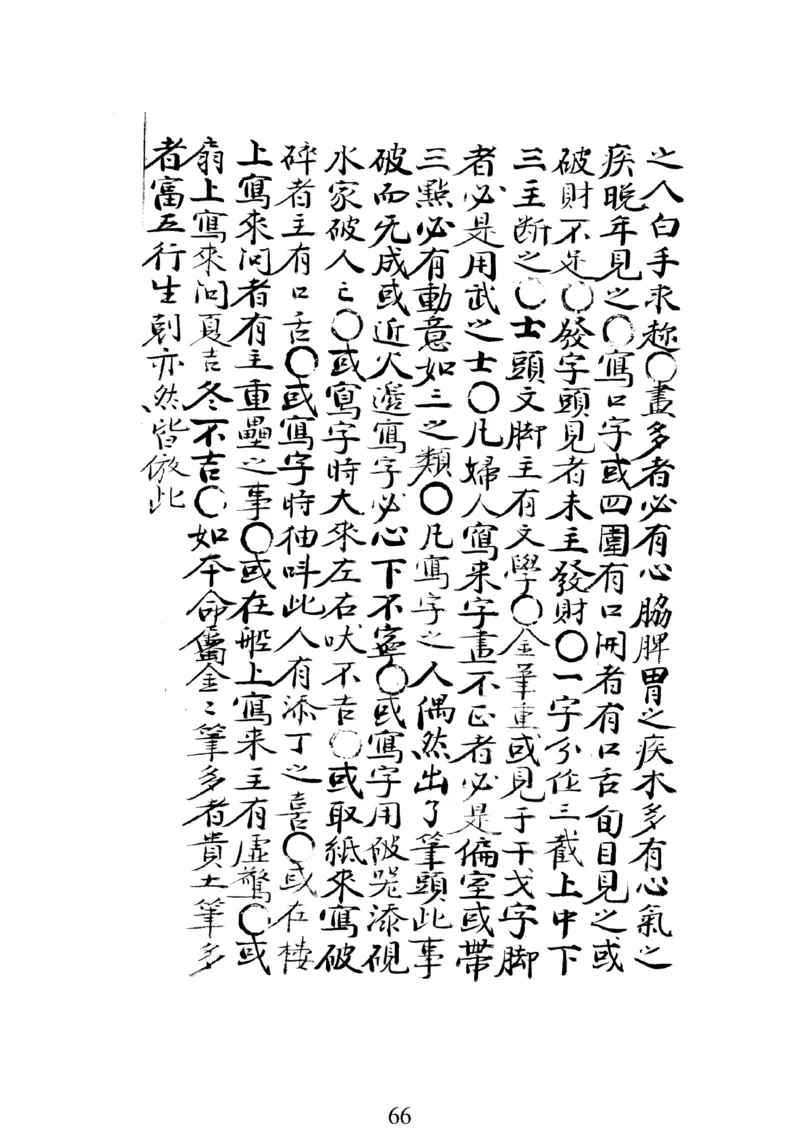 之人白手求趂〇畫多者必有心脇脾胃之疾木多有心氣之
疾晚年見之〇寫口字或四圍有口開者有口舌旬日見之或
破財不足〇發字頭見者未主發財〇一字分作三截上中下
三主断之〇士頭文脚主有文學〇金筆重或見于干戈字脚
者必是用武之士〇凡婦人寫来字畫不正者必是偏室或帶
三點必有動意如三之類〇凡寫字之人偶然出了筆頭此事
破而无成或近火邊寫字必心下不寧〇或寫字用破器添硯
水家破人亡〇或寫字時犬來左右吠不吉〇或取紙來寫破
碎者主有口舌〇或寫字時抽呌此人有添丁之喜〇或在楼
上寫來问者有主重疊之事〇或在船上寫来主有虛驚〇或
扇上寫來问夏吉冬不吉〇如夲命屬金〻筆多者貴土筆多
者富五行生剋亦然皆倣此
66